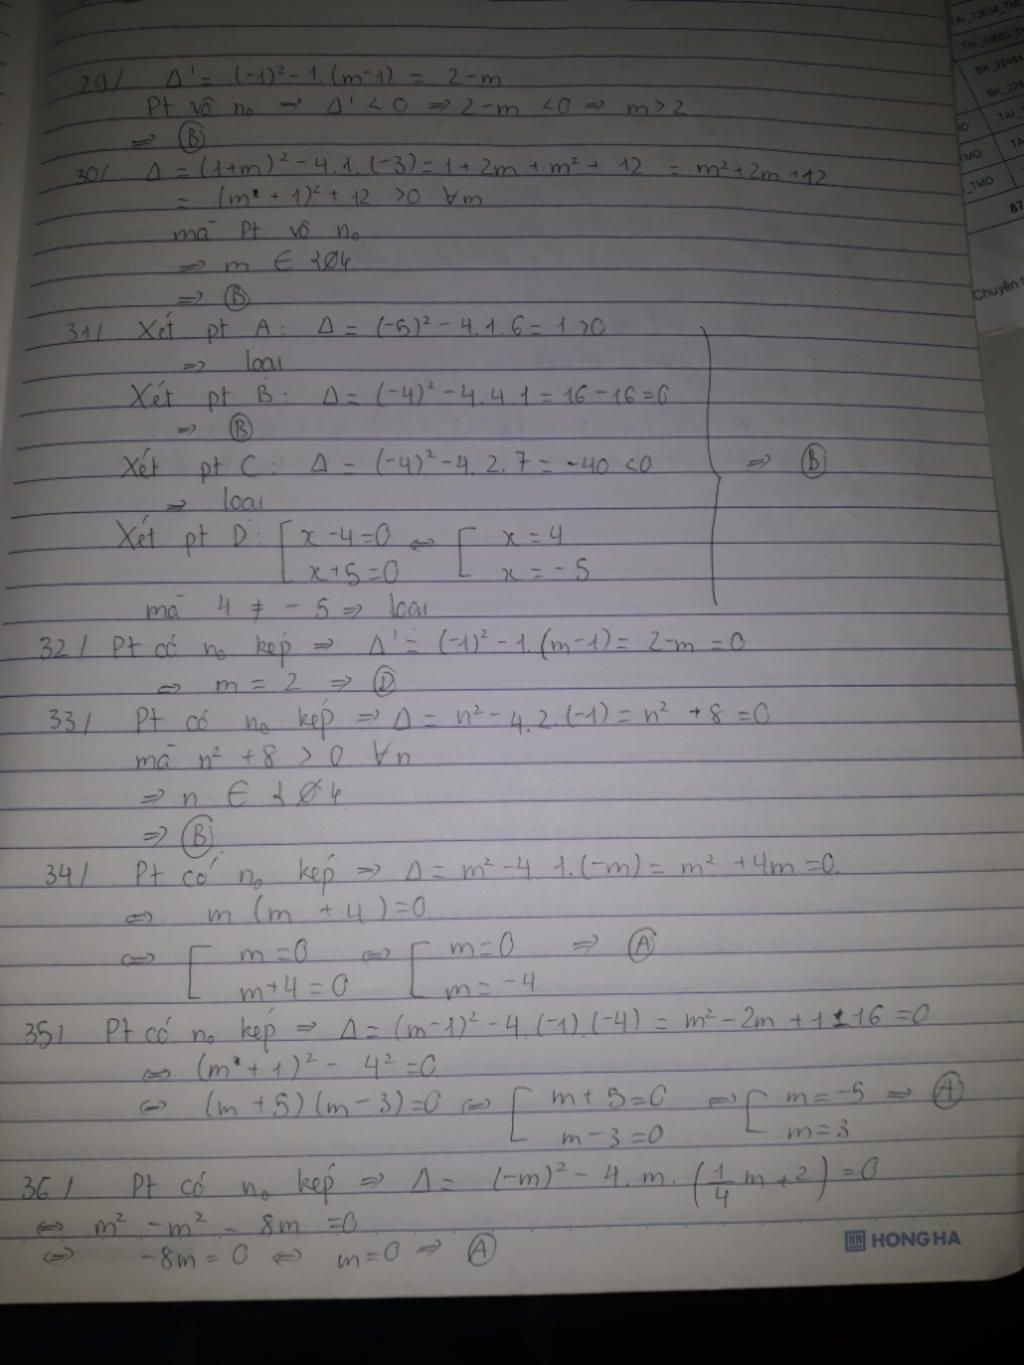 29/ Δ' = (-1)² - 1.(m-1) = 2-m
Pt vô n₀ → Δ' < 0 ⇒ 2-m < 0 ⇒ m > 2
⇒ Ⓑ
30/ Δ = (1+m)² - 4.1.(-3) = 1 + 2m + m² + 12 = m² + 2m + 12
= (m + 1)² + 12 > 0 ∀m
mà Pt vô n₀
⇒ m ∈ {∅}
⇒ Ⓑ
31/ Xét pt A: Δ = (-5)² - 4.1.6 = 1 > 0
⇒ loại
Xét pt B: Δ = (-4)² - 4.4.1 = 16 - 16 = 0
⇒ Ⓑ
Xét pt C: Δ = (-4)² - 4.2.7 = -40 < 0 ⇒ Ⓑ
⇒ loại
Xét pt D: [ x - 4 = 0 ⇔ [ x = 4
x + 5 = 0 x = -5
mà 4 ≠ -5 ⇒ loại
32/ Pt có n₀ kép ⇒ Δ' = (-1)² - 1.(m-1) = 2-m = 0
⇔ m = 2 ⇒ Ⓓ
33/ Pt có n₀ kép ⇒ Δ = n² - 4.2.(-1) = n² + 8 = 0
mà n² + 8 > 0 ∀n
⇒ n ∈ {∅}
⇒ Ⓑ
34/ Pt có n₀ kép ⇒ Δ = m² - 4.1.(-m) = m² + 4m = 0
⇔ m (m + 4) = 0
⇔ [ m = 0 ⇔ [ m = 0 ⇒ Ⓐ
m + 4 = 0 m = -4
35/ Pt có n₀ kép ⇒ Δ = (m-1)² - 4.(-1).(-4) = m² - 2m + 1 - 16 = 0
⇔ (m + 1)² - 4² = 0
⇔ (m + 5)(m - 3) = 0 ⇔ [ m + 5 = 0 ⇔ [ m = -5 ⇒ Ⓐ
m - 3 = 0 m = 3
36/ Pt có n₀ kép ⇒ Δ = (-m)² - 4.m.(1/4 m + 2) = 0
⇔ m² - m² - 8m = 0
⇔ -8m = 0 ⇔ m = 0 ⇒ Ⓐ
HONG HA
BK_22484
_TMO
87
Chuyên